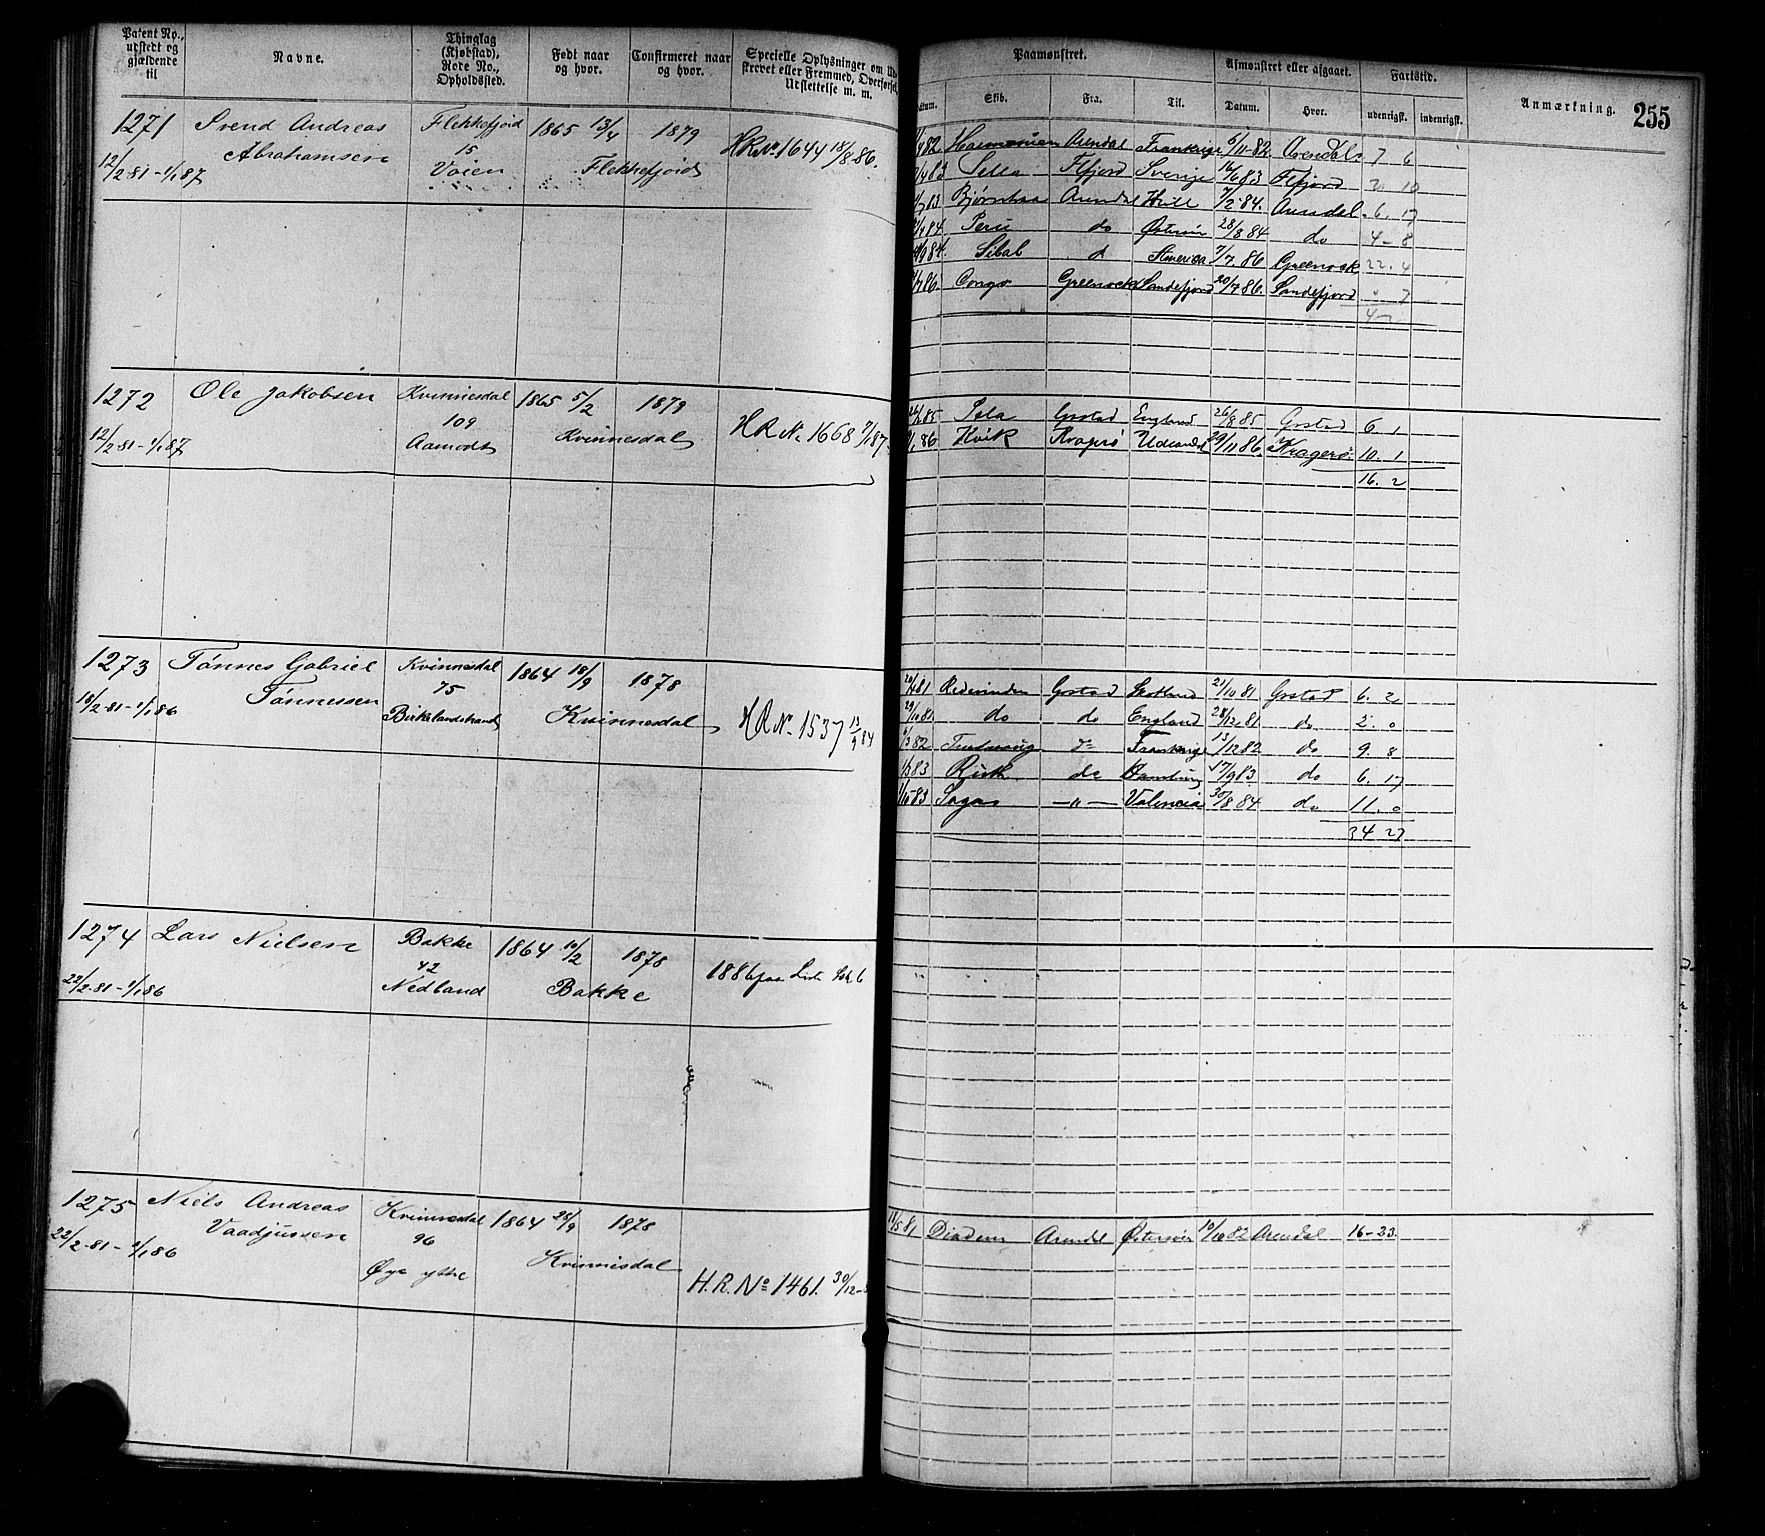 Patent No., udstedt og gjældende til
Navne.
Thinglag (Kjøbstad), Rore No., Opholdssted.
Født naar og hvor.
Confirmeret naar og hvor.
Specielle Oplysninger om
Paamønstret.
Afmønstret eller afgaaet.
Fartstid.
Anmærkning. 255
Skib. Fra. Til. Datum. Hvor. udenrigsk. indenrigsk.
1271 Svend Andreas Flekkefjord 1865 13/4 1879 H.R.No. 1644 18/8 86.
Abrahamsen 15
12/2-81-1/1 87 Voien Flekkefjord
Arendal Frankrige 6/11-82 Arendal 7 6
Sella Flfjord Sverige 16/6 83 Flfjord 2 10
Arendal Hull 7/2-84. Arendal 6. 17
Peru do Østersøn 28/8 84 do 4-8
Amerika 7/7 86 Greenock 22. 4
Congo Greenock Sandefjord 20/7 86. Sandefjord 7
1272 Ole Jakobsen Kvinnesdal 1865 5/2 1879
109
12/2-81-1/1 87 Aamodt Kvinnesdal H R No. 1668 7/1 87
England 26/8 85 6 1
Hvik Kragerø 29/11 86. Kragerø. 10. 1
16. 2
1273 Tønnes Gabriel Kvinnesdal 1864 18/9 1878
75
18/2-81-1/1 86 Tønnessen Birkelandstrand Kvinnesdal H.R.No. 1537 13/9 84
20/4 81 Grstad Skotland 21/10 81 Grstad 6. 2
29/10 81 do do England 28/12 81 do 2. 0
6/3 82 do Frankrige 13/12 82 do 9. 8
do Hamburg 17/9 83 do 6. 17
Sagas -"- Valencia 30/8 84 do 11. 0
34 27
1274 Lars Nielsen Bakke 1864 10/2 1878
42
22/2-81-1/1 86 Nedland Bakke 1886 paa
1275 Niels Andreas Kvinnesdal 1864 28/9 1878
Vaadjussen 96
22/2-81-1/1 86 Øye ytre Kvinnesdal H.R.No 1461. 30/12-
11/5 81 Diadem Arendal Østersøn 10/10 82 Arendal 16-23.